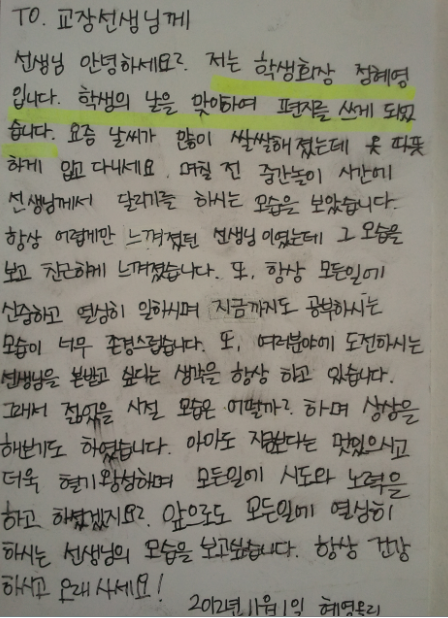 TO. 교장선생님께
선생님 안녕하세요?. 저는 학생회장 정혜영
입니다. 학생의 날을 맞이하여 편지를 쓰게 되었
습니다. 요즘 날씨가 많이 쌀쌀해졌는데 옷 따뜻
하게 입고 다니세요. 며칠 전 중간놀이 시간에
선생님께서 달리기를 하시는 모습을 보았습니다.
항상 어렵게만 느껴졌던 선생님이였는데 그 모습을
보고 친근하게 느껴졌습니다. 또, 항상 모든일에
신중하고 열심히 일하시며 지금까지도 공부하시는
모습이 너무 존경스럽습니다. 또, 여러분야에 도전하시는
선생님을 본받고 싶다는 생각을 항상 하고 있습니다.
그래서 젊었을 시절 모습은 어떨까?. 하며 상상을
해보기도 하였습니다. 아마도 지금보다는 멋있으시고
더욱 혈기왕성하며 모든일에 시도와 노력을
하고 하셨겠지요?. 앞으로도 모든일에 열심히
하시는 선생님의 모습을 보고싶습니다. 항상 건강
하시고 오래 사세요!
2012년 11월 1일 혜영올림